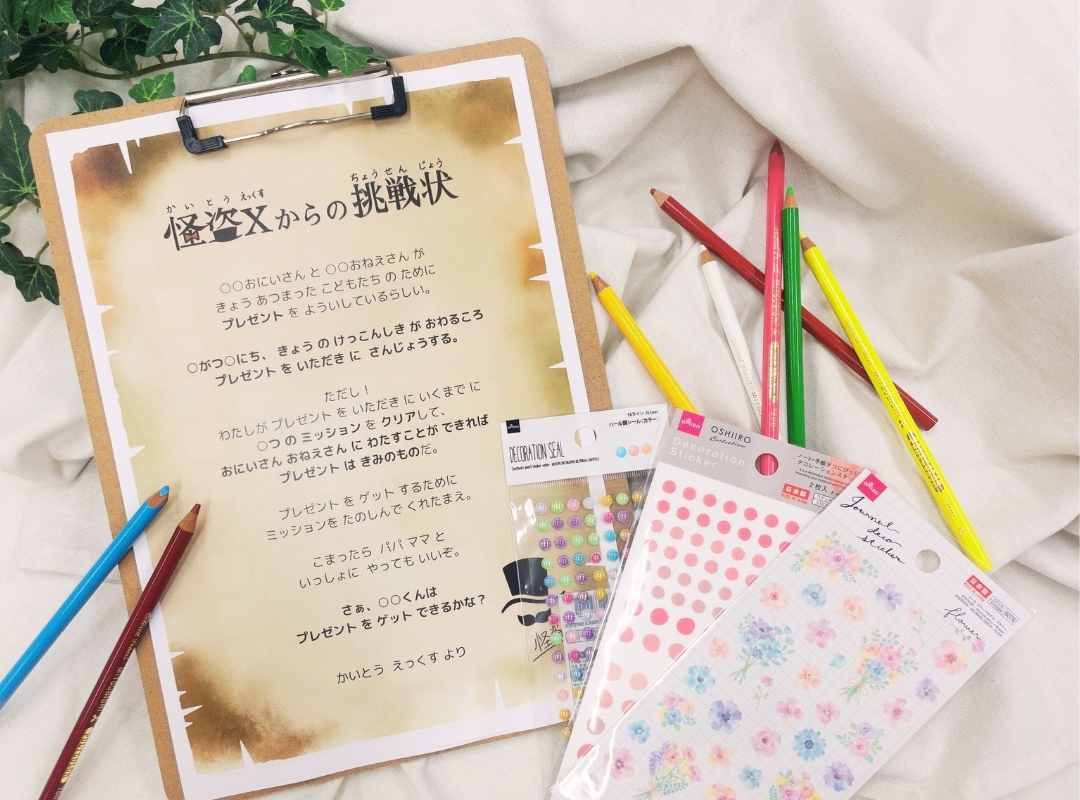 かいとう えっくす ちょうせんじょう
怪盗Xからの挑戦状
○○おにいさん と ○○おねえさん が
きょう あつまった こどもたち の ために
プレゼント を よういしているらしい。
○がつ○にち、 きょう の けっこんしき が おわるころ
プレゼント を いただき に さんじょうする。
ただし！
わたしが プレゼント を いただき に いくまで に
○つ の ミッション を クリアして、
おにいさん おねえさん に わたすことが できれば
プレゼント は きみのものだ。
プレゼント を ゲット するために
ミッションを たのしんで くれたまえ。
こまったら パパ ママ と
いっしょに やっても いいぞ。
さぁ、○○くんは
プレゼント を ゲット できるかな？
かいとう えっくす より
怪
DECORATION SEAL
パール調シール・カラー
OSHIIRO
Collection
Decoration
Sticker
2枚入
日本製
Journel
deco
sticker
日本製
flower